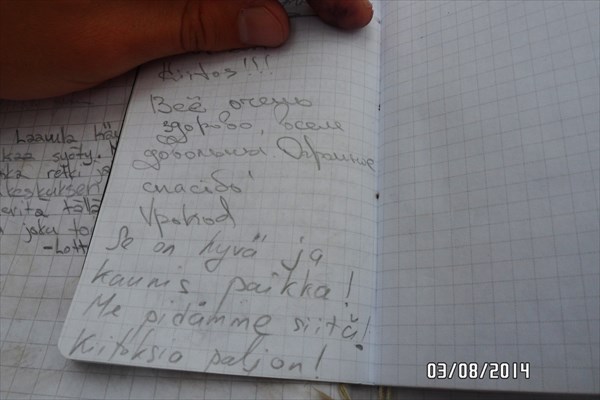 Kiitos!!!
Всё очень
здорово, всем
довольны Огромное
спасибо!
Vpohod
Se on hyvä ja
kaunis paikka!
Me pidämme siitä!
Kiitoksia paljon!
Laavulla
syöty.
retki ja
tällä
joku to
-Lott
03/08/2014